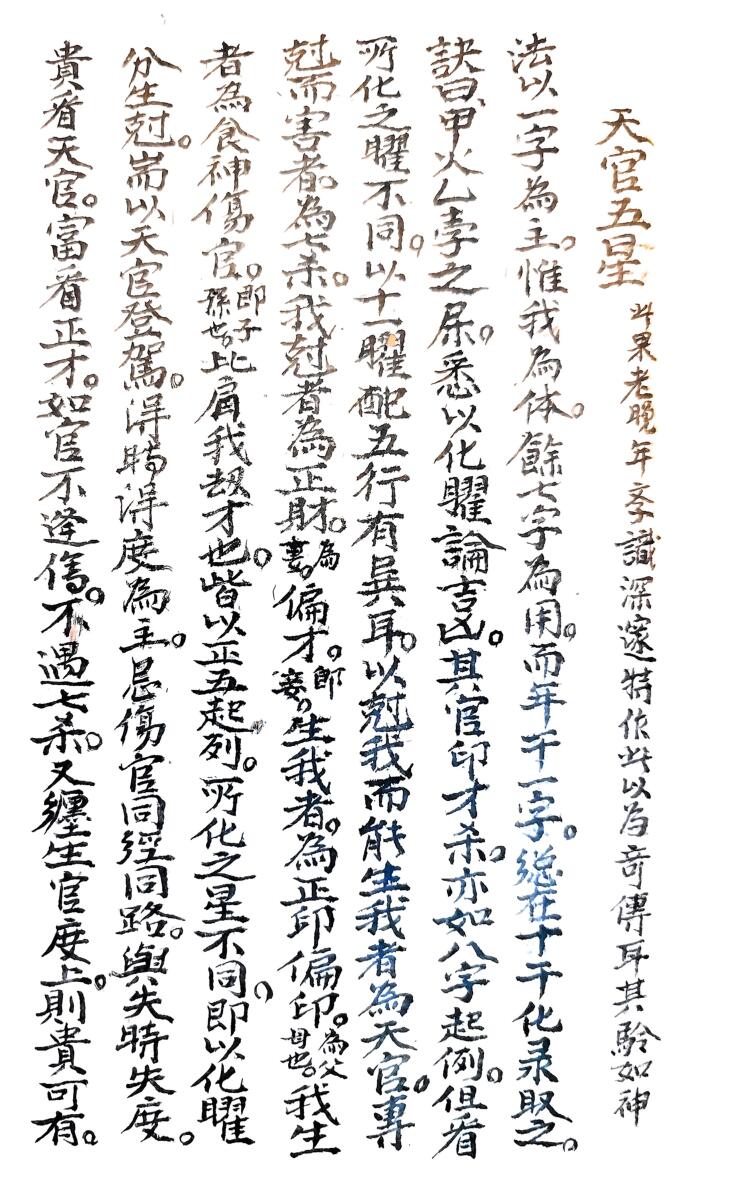 天官五星 此果老晚年学識深邃特作此以为奇傳耳其騐如神
法以一字為主。惟我為体。餘七字為用。而年干一字。總在十干化录取之。
訣曰、甲火乙孛之屬。悉以化曜論吉凶。其官印才杀。亦如八字起例。但看
所化之曜不同。以十一曜配五行有異耳。以尅我而能生我者為天官。專
尅而害者。為七杀。我尅者為正財。為妻。偏才。即妾。生我者。為正印偏印。為父母也。我生
者為食神傷官。即子孫也。比肩我刼才也。皆以正五起列。所化之星不同。即以化曜
分生尅。耑以天官登駕。淂時淂度為主。忌傷官同經同路。與失時失度。
貴看天官。富看正才。如官不逢傷。不遇七杀。又纏生官度上。則貴可有。